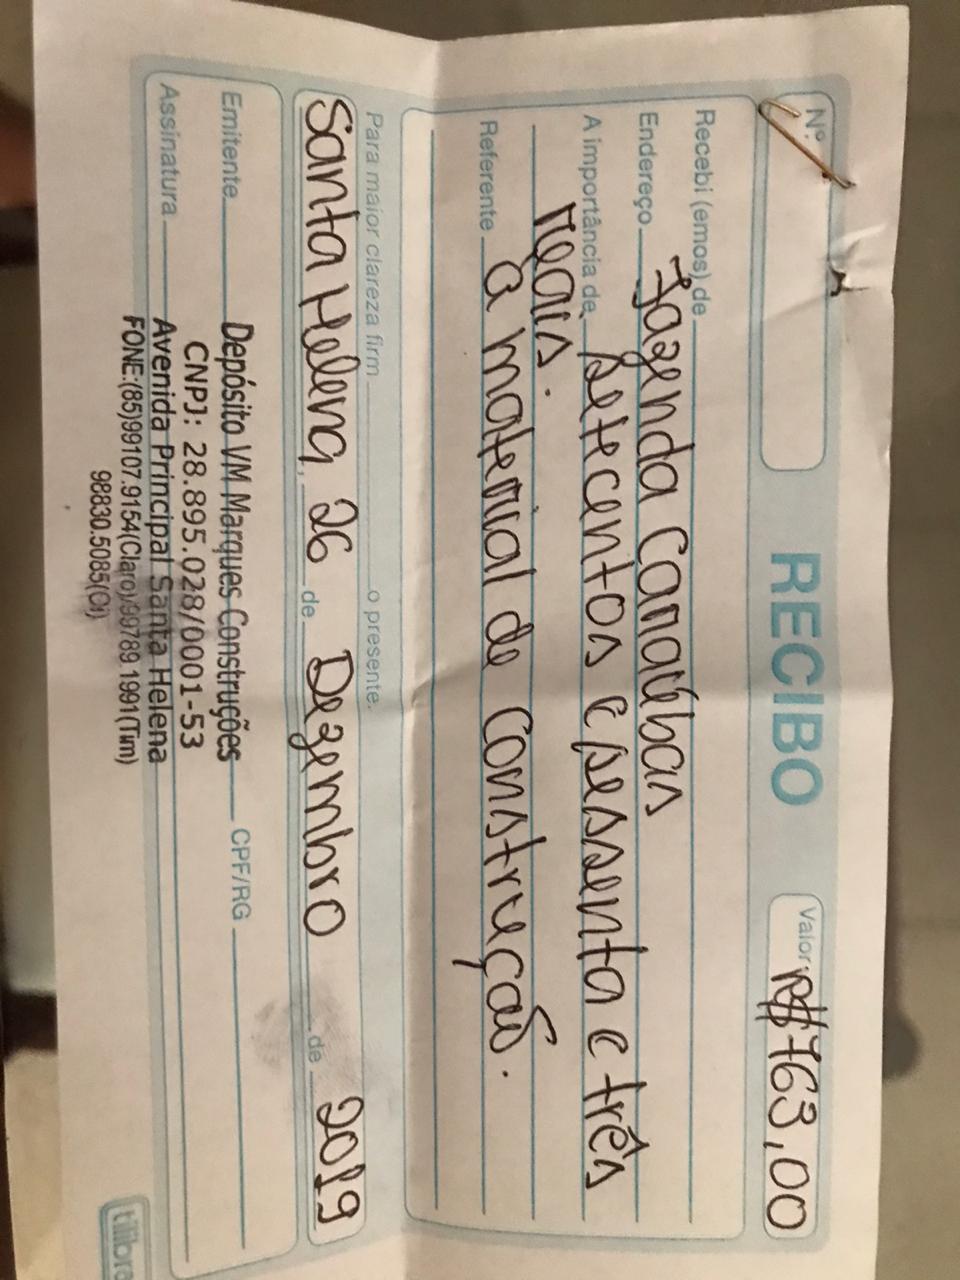 Nº.
RECIBO
Valor R$763,00
Recebi (emos) de
Endereço Fazenda Canaúbas
A importância de setecentos e sessenta e três
reais.
Referente a material de construção.
Para maior clareza firm o presente.
Santa Helena, 26 de Dezembro de 2019
Emitente Depósito VM Marques Construções CPF/RG
CNPJ: 28.895.028/0001-53
Assinatura Avenida Principal Santa Helena
FONE:(85)99107.9154(Claro)/99789.1991(Tim)
98830.5085(Oi)
tilibra